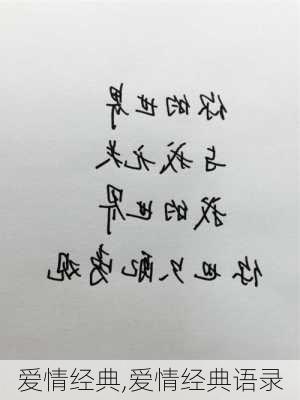 你的世界
与我无关
我的世界
你也只配
爱情经典,爱情经典语录